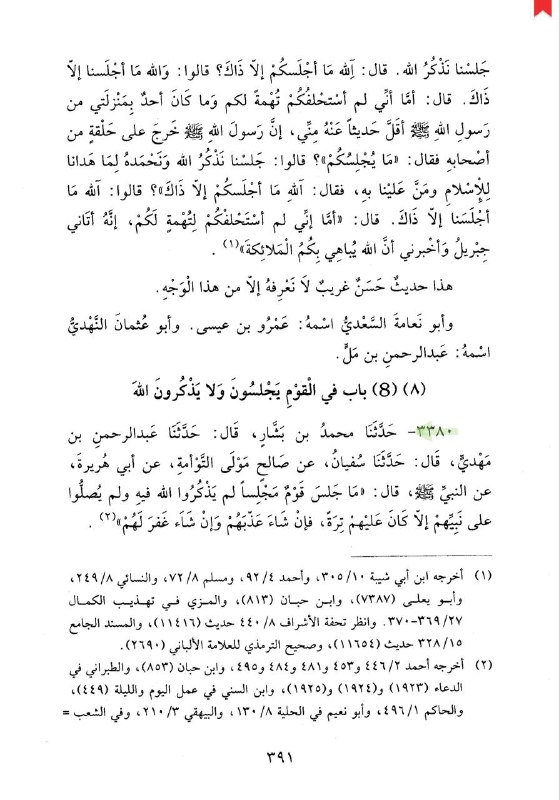 جَلسْنا نَذْكُرُ الله. قال: آللهِ مَا أجْلَسكُمْ إلَّا ذَاكَ؟ قالوا: وَالله مَا أجْلَسنا إلَّا
ذَاكَ. قال: أمَّا أنِّي لم أسْتَحْلفْكُمْ تُهْمَةً لكم وَما كَانَ أحدٌ بِمَنْزلَتي من
رسولِ اللهِ ﷺ أقلَّ حديثاً عَنْهُ مِنِّي، إنَّ رَسولَ اللهِ ﷺ خَرجَ على حَلْقةٍ من
أصْحابهِ فقال: «مَا يُجْلِسُكُمْ»؟ قالوا: جَلسْنَا نَذْكُرُ الله وَنَحْمَدهُ لِمَا هَدانا
لِلْإسْلامِ ومَنَّ عَليْنا بهِ، فقال: آللهِ مَا أجْلَسكُمْ إلَّا ذَاكَ»؟ قالوا: آلله مَا
أجْلَسَنا إلَّا ذَاكَ. قال: «أمَّا إنِّي لم أسْتَحْلفْكُمْ لِتُهْمةٍ لَكُمْ، إنَّهُ أتَاني
جِبْريلُ وَأخْبرني أنَّ الله يُبَاهي بِكُمُ الْمَلائكةَ»(١) .
هذا حديثٌ حَسَنٌ غريبٌ لَا نَعْرِفهُ إلَّا من هذا الْوَجْهِ.
وأبو نَعامةَ السَّعْديُّ اسْمهُ: عَمْرُو بن عيسى. وأبو عُثمانَ النَّهْديُّ
اسْمهُ: عَبدالرحمنِ بن مَلٍّ.
(٨) (8) باب في الْقوْمِ يَجْلسُونَ وَلا يَذْكرُونَ اللهَ
٣٣٨٠- حَدَّثنَا محمدُ بن بَشَّارٍ، قَال: حَدَّثنَا عَبدالرحمنِ بن
مَهْديٍّ، قَال: حَدَّثنَا سُفيان، عن صَالحٍ مَوْلَى التَّوْأمةِ، عن أبي هُريرةَ،
عن النبيِّ ﷺ، قال: «مَا جَلسَ قَوْمٌ مَجْلِساً لم يَذْكُرُوا الله فيهِ ولم يُصلُّوا
على نَبيِّهِمْ إلَّا كَانَ عَليْهمْ تِرَةً، فإنْ شَاءَ عَذَّبَهُمْ وَإنْ شَاءَ غَفرَ لَهُمْ»(٢) .
(١) أخرجه ابن أبي شيبة ٣٠٥/١٠، وأحمد ٩٢/٤، ومسلم ٧٢/٨، والنسائي ٢٤٩/٨،
وأبو يعلى (٧٣٨٧)، وابن حبان (٨١٣)، والمزي في تهذيب الكمال
٣٦٩/٢٧-٣٧٠. وانظر تحفة الأشراف ٤٤٠/٨ حديث (١١٤١٦)، والمسند الجامع
٣٢٨/١٥ حديث (١١٦٥٤)، وصحيح الترمذي للعلامة الألباني (٢٦٩٠).
(٢) أخرجه أحمد ٤٤٦/٢ و٤٥٣ و٤٨١ و٤٨٤ و٤٩٥، وابن حبان (٨٥٣)، والطبراني في
الدعاء (١٩٢٣) و(١٩٢٤) و(١٩٢٥)، وابن السني في عمل اليوم والليلة (٤٤٩)،
والحاكم ٤٩٦/١، وأبو نعيم في الحلية ١٣٠/٨، والبيهقي ٢١٠/٣، وفي الشعب =
٣٩١